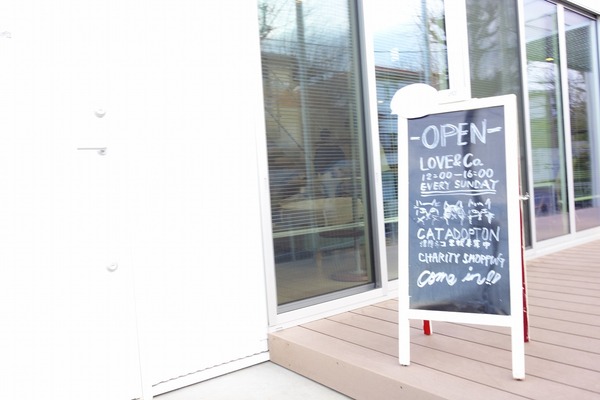 -OPEN-
LOVE&Co.
12:00-16:00
EVERY SUNDAY
CATADOPTON
CHARITY SHOPPING
Come in!!